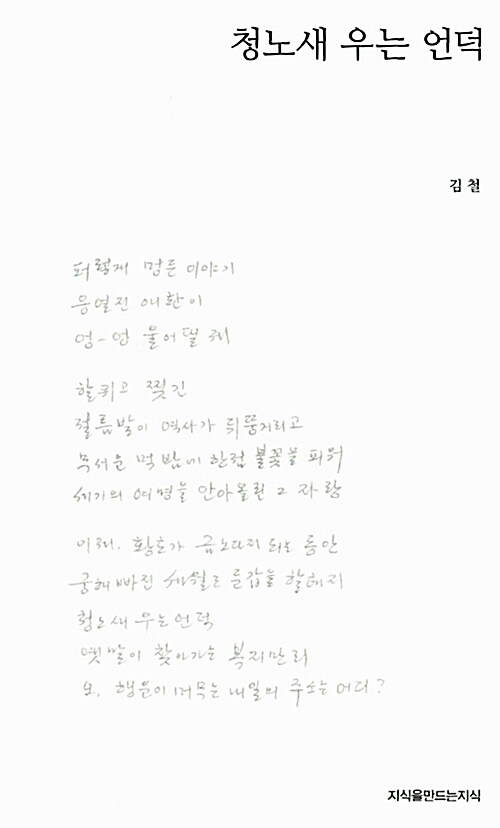 청노새 우는 언덕
김 철
퍼렇게 멍든 이야기
응열진 애환이
엉-엉 울어댈 때
할퀴고 찢긴
절름발이 역사가 뒤뚱거리고
무서운 먹밤에 한점 불꽃을 피워
세기의 여명을 안아올린 그 자랑
이제. 황혼가 금노다지 되는 동안
궁해빠진 세월로 둔갑을 할테지
청노새 우는 언덕
옛말이 찾아가는 복지만리
오, 행운이 머무는 내일의 주소는 어디?
지식을만드는지식